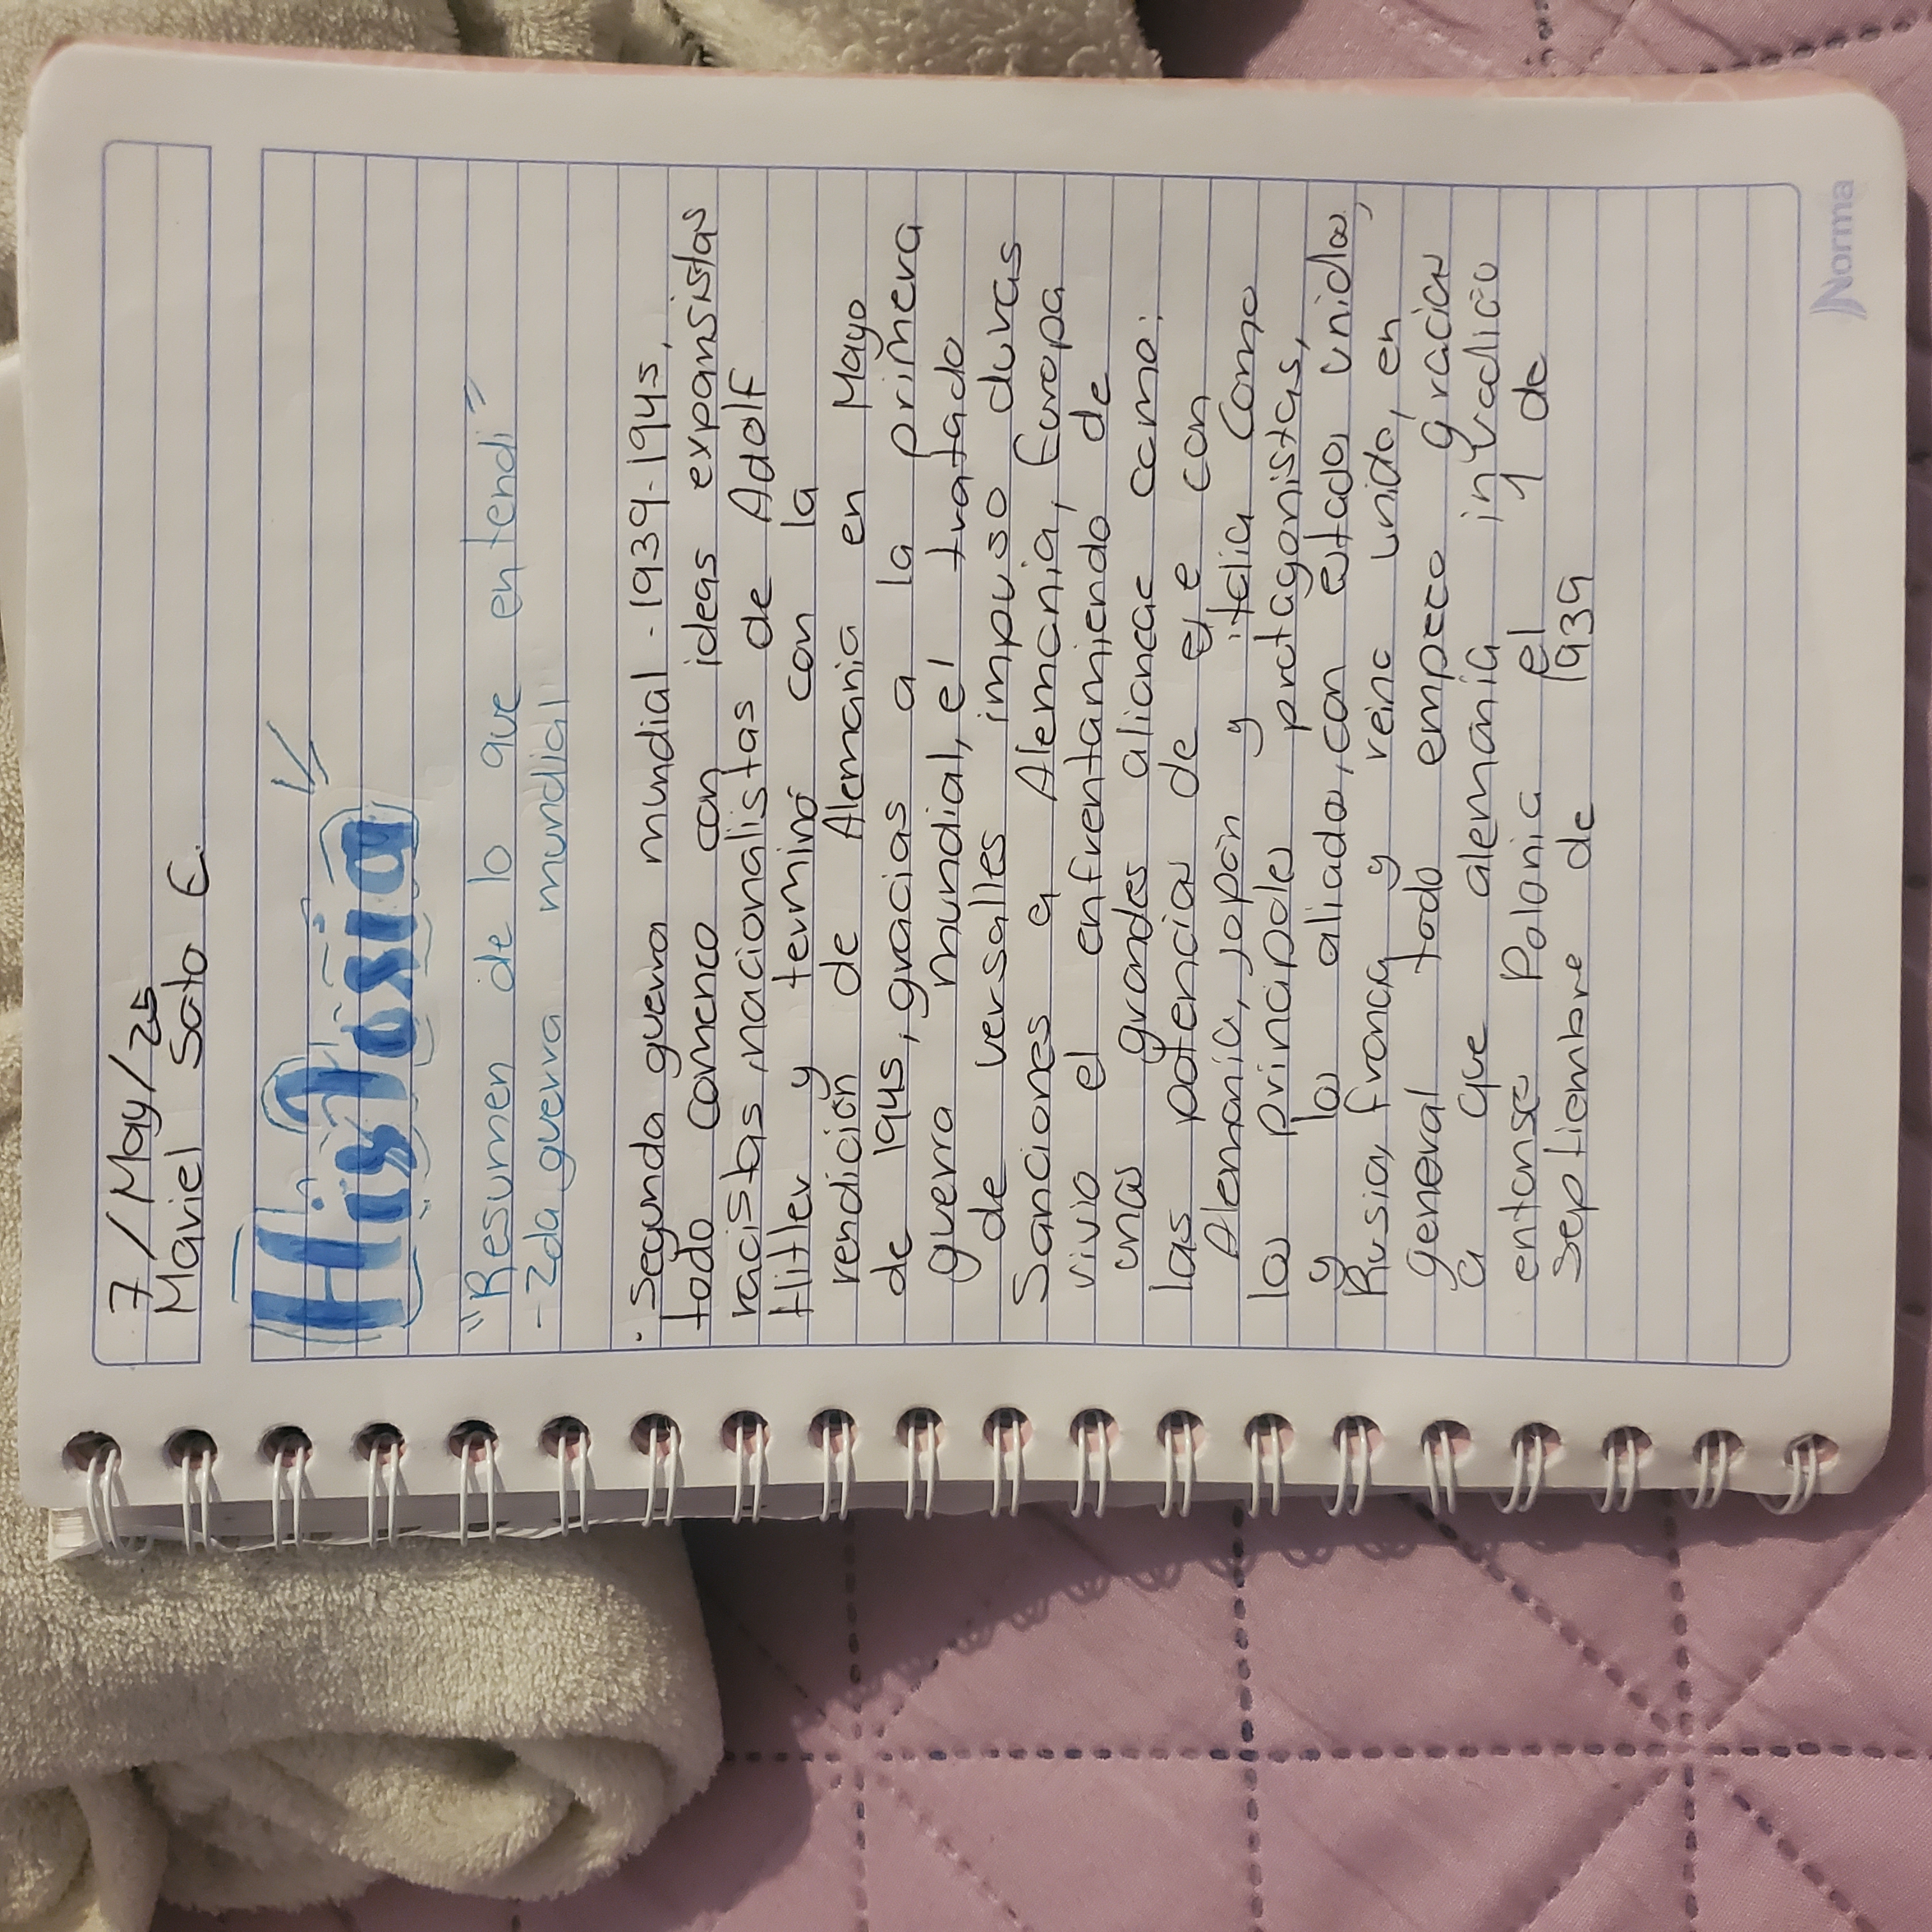 7/May/25
Mariel Soto E.
Historia
"Resumen de lo que entendi"
-2da guerra mundial
· Segunda guerra mundial -1939-1945,
todo comenco con ideas expansistas
racistas, nacionalistas de Adolf
Hitler y terminó con la
rendición de Alemania en Mayo
de 1945, gracias a la primera
guerra mundial, el tratado
de versalles impuso duras
Sanciones a Alemania, Europa
vivio el enfrentamiendo de
unas grandes aliancac como:
las potencias de eje con
Alemania, japón y italia Como
los principales protagonistas,
y los aliados, con estados unidos,
Rusia, francia y reino unido, en
general todo empeco gracias
a que alemania invadiço
entonse Polonia el 1 de
Septiembre de 1939
Norma